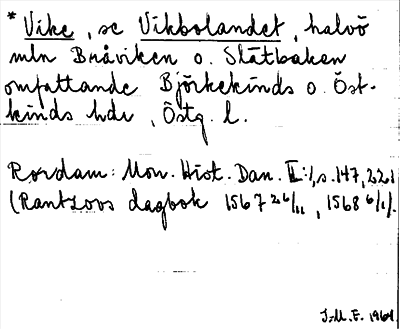 * Vike, se Vikbolandet, halvö
mln Bråviken o. Slätbaken
omfattande Björkekinds o. Öst-
kinds hdr, Östg. l.
Rordam: Mon. Hist. Dan. II:1, s. 147, 221
(Rantzovs dagbok 1567 26/11, 1568 6/1).
J.M.F. 1964.